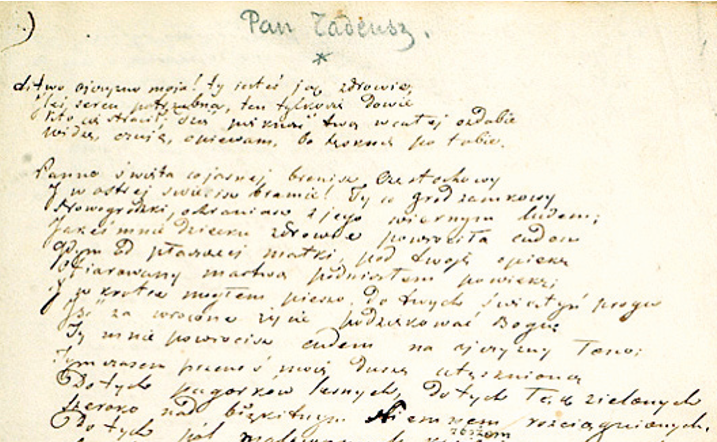 Pan Tadeusz.
*
Litwo ojczyzno moja! ty jesteś jak zdrowie,
sercu potrzebna, ten tylko dowie
Kto cię stracił, dziś piękność twą w całej ozdobie
widzę, czuję, opiewam, bo tesknię po tobie.
Panno święta co jasnej bronisz Częstochowy
I w ostrej świecisz bramie! Ty co gród zamkowy
Nowogródzki, ochraniasz z jego wiernym ludem;
Jakeś mnie dziecku zdrowie powróciła cudem
Gdym od płaczącej matki, pod twoję opiekę
Ofiarowany martwą podniosłem powiekę;
I w krótce mogłem pieszo, do twych świątyń progu
Iść za wrócone życie podziękować Bogu
Ty mnie powrócisz cudem na ojczyzny łono;
Tymczasem przenoś moję duszę utęsknioną
Do tych pagórków leśnych, do tych łąk zielonych
Szeroko nad błękitnym Niemnem rozciągnionych,
Do tych pól zbożem